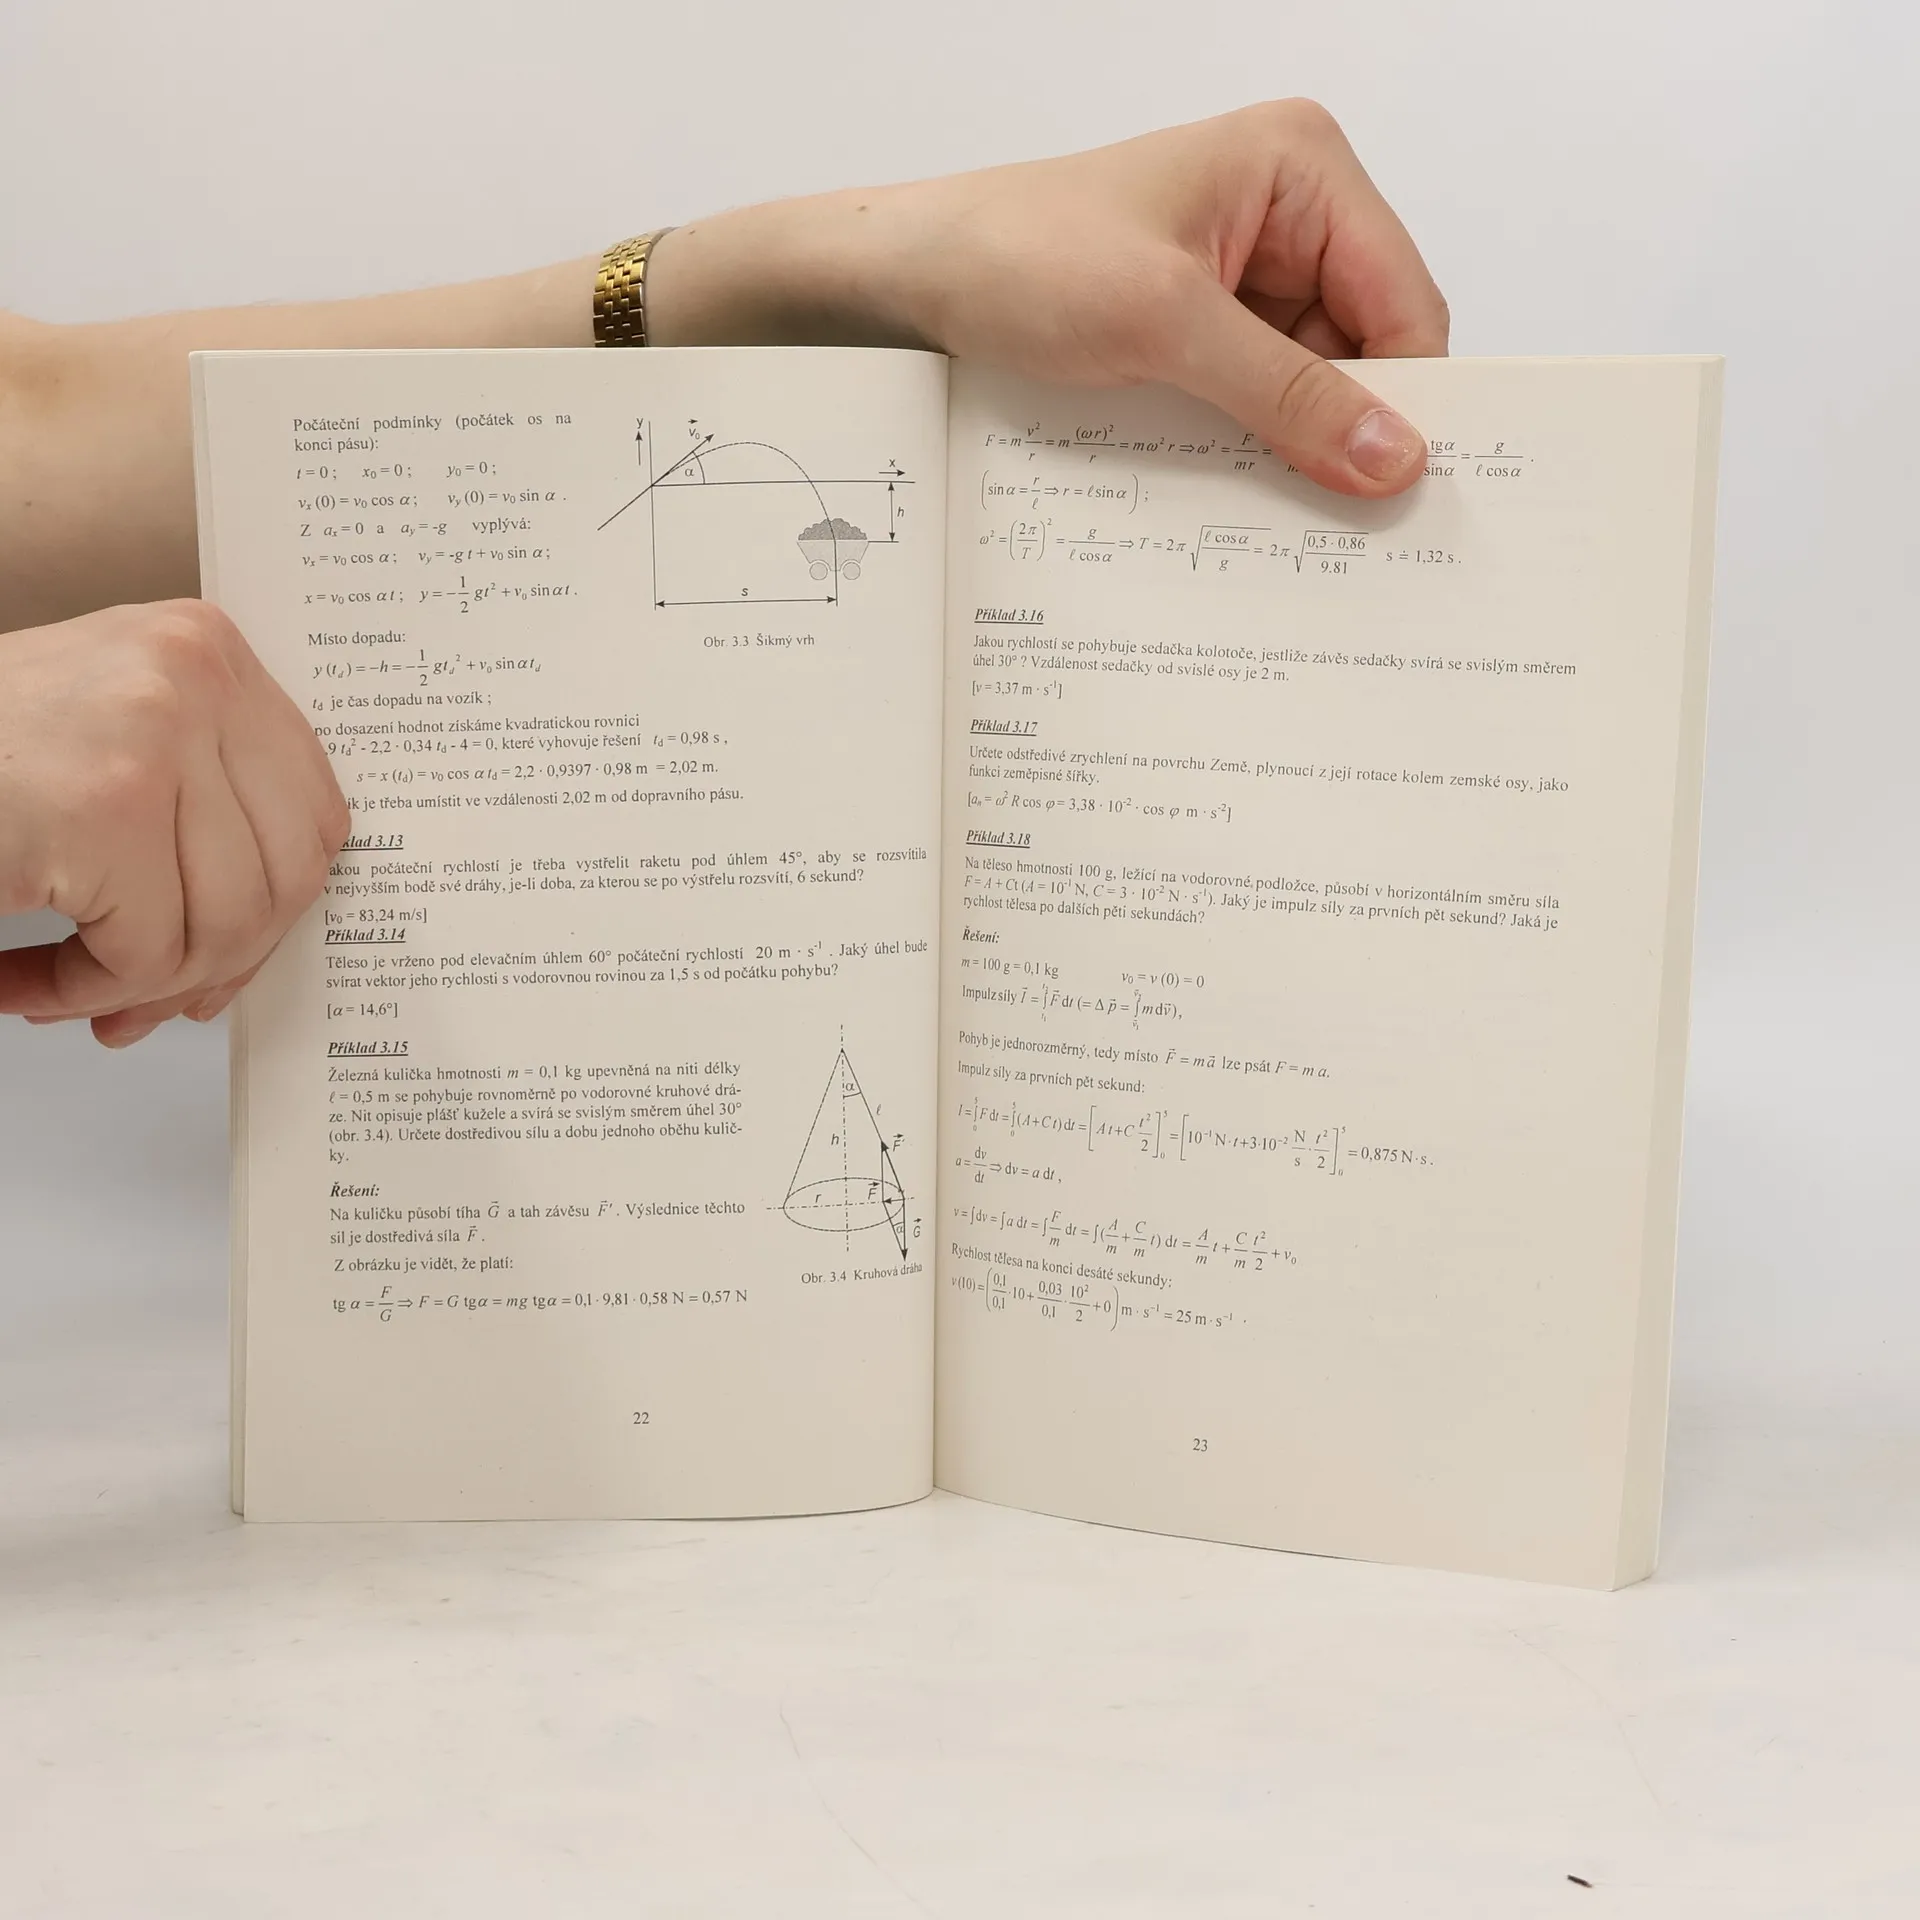 Počáteční podmínky (počátek os na
konci pásu):
t = 0 ; x₀ = 0 ; y₀ = 0 ;
vₓ (0) = v₀ cos α ; v_y (0) = v₀ sin α .
Z aₓ = 0 a a_y = -g vyplývá:
vₓ = v₀ cos α ; v_y = -g t + v₀ sin α ;
x = v₀ cos α t ; y = -1/2 gt² + v₀ sin α t .
y
v⃗₀
α
x
h
s
Obr. 3.3 Šikmý vrh
Místo dopadu:
y (t_d) = -h = -1/2 gt_d² + v₀ sin α t_d
t_d je čas dopadu na vozík ;
po dosazení hodnot získáme kvadratickou rovnici
,9 t_d² - 2,2 · 0,34 t_d - 4 = 0, které vyhovuje řešení t_d = 0,98 s ,
s = x (t_d) = v₀ cos α t_d = 2,2 · 0,9397 · 0,98 m = 2,02 m.
ík je třeba umístit ve vzdálenosti 2,02 m od dopravního pásu.
klad 3.13
akou počáteční rychlostí je třeba vystřelit raketu pod úhlem 45°, aby se rozsvítila
v nejvyšším bodě své dráhy, je-li doba, za kterou se po výstřelu rozsvítí, 6 sekund?
[v₀ = 83,24 m/s]
Příklad 3.14
Těleso je vrženo pod elevačním úhlem 60° počáteční rychlostí 20 m · s⁻¹ . Jaký úhel bude
svírat vektor jeho rychlosti s vodorovnou rovinou za 1,5 s od počátku pohybu?
[α = 14,6°]
Příklad 3.15
Železná kulička hmotnosti m = 0,1 kg upevněná na niti délky
ℓ = 0,5 m se pohybuje rovnoměrně po vodorovné kruhové drá-
ze. Nit opisuje plášť kužele a svírá se svislým směrem úhel 30°
(obr. 3.4). Určete dostředivou sílu a dobu jednoho oběhu kulič-
ky.
Řešení:
Na kuličku působí tíha G⃗ a tah závěsu F⃗' . Výslednice těchto
sil je dostředivá síla F⃗ .
Z obrázku je vidět, že platí:
tg α = F/G ⇒ F = G tgα = mg tgα = 0,1 · 9,81 · 0,58 N = 0,57 N
α
ℓ
h
F⃗'
r
F⃗
α
G⃗
Obr. 3.4 Kruhová dráha
22
F = m v²/r = m (ωr)²/r = mω² r ⇒ ω² = F/mr = tgα/sinα = g/ℓ cosα .
(sin α = r/ℓ ⇒ r = ℓ sin α) ;
ω² = (2π/T)² = g/ℓ cosα ⇒ T = 2π √(ℓ cosα/g) = 2π √(0,5 · 0,86/9.81) s ≐ 1,32 s .
Příklad 3.16
Jakou rychlostí se pohybuje sedačka kolotoče, jestliže závěs sedačky svírá se svislým směrem
úhel 30° ? Vzdálenost sedačky od svislé osy je 2 m.
[v = 3,37 m · s⁻¹]
Příklad 3.17
Určete odstředivé zrychlení na povrchu Země, plynoucí z její rotace kolem zemské osy, jako
funkci zeměpisné šířky.
[aₙ = ω² R cos φ = 3,38 · 10⁻² · cos φ m · s⁻²]
Příklad 3.18
Na těleso hmotnosti 100 g, ležící na vodorovné podložce, působí v horizontálním směru síla
F = A + Ct (A = 10⁻¹ N, C = 3 · 10⁻² N · s⁻¹). Jaký je impulz síly za prvních pět sekund? Jaká je
rychlost tělesa po dalších pěti sekundách?
Řešení:
m = 100 g = 0,1 kg v₀ = v (0) = 0
Impulz síly I⃗ = ∫_{t₁}^{t₂} F⃗ dt (= Δ p⃗ = ∫_{v⃗₁}^{v⃗₂} m dv⃗),
Pohyb je jednorozměrný, tedy místo F⃗ = m a⃗ lze psát F = m a.
Impulz síly za prvních pět sekund:
I = ∫₀⁵ F dt = ∫₀⁵ (A + C t) dt = [A t + C t²/2]₀⁵ = [10⁻¹ N · t + 3·10⁻² N/s · t²/2]₀⁵ = 0,875 N · s .
a = dv/dt ⇒ dv = a dt ,
v = ∫dv = ∫a dt = ∫F/m dt = ∫(A/m + C/m t) dt = A/m t + C/m t²/2 + v₀
Rychlost tělesa na konci desáté sekundy:
v (10) = (0,1/0,1 · 10 + 0,03/0,1 · 10²/2 + 0) m · s⁻¹ = 25 m · s⁻¹ .
23